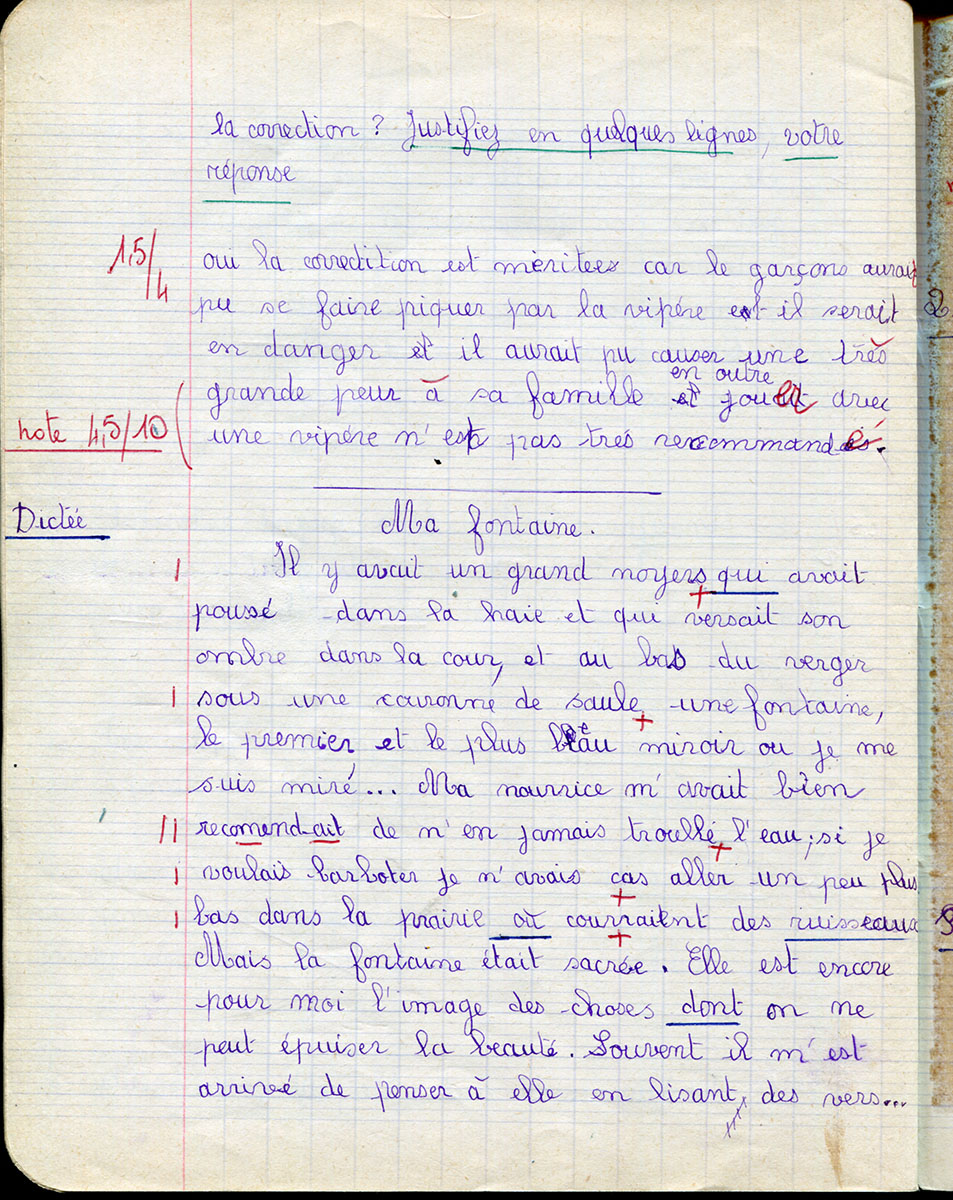 la correction ? Justifiez en quelques lignes, votre
réponse
1,5/4
oui la corredition est méritees car le garçons aurait
pu se faire piquer par la vipére et il serait
en danger et il aurait pu causer une très
en outre
grande peur à sa famille et jouer avec
note 4,5/10
une vipére n'est pas trés recommandé.
Dictée
Ma fontaine.
Il y avait un grand noyers qui avait
poussé dans la haie et qui versait son
ombre dans la cour, et au bas du verger
sous une couronne de saule, une fontaine,
le premier et le plus beau miroir ou je me
suis miré... Ma nourrice m'avait bien
recomend-ait de n'en jamais troublé l'eau; si je
voulais barboter je n'avais cas aller un peu plus
bas dans la prairie où courraitent des ruisseaux
Mais la fontaine était sacrée. Elle est encore
pour moi l'image des choses dont on ne
peut épuiser la beauté. Souvent il m'est
arrivé de penser à elle en lisant des vers...